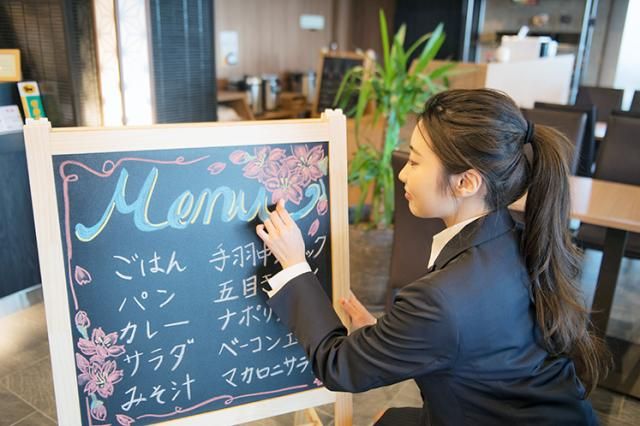 Menu
ごはん
パン
カレー
サラダ
みそ汁
手羽中
五目
ナポリ
ベーコン
マカロニサラ